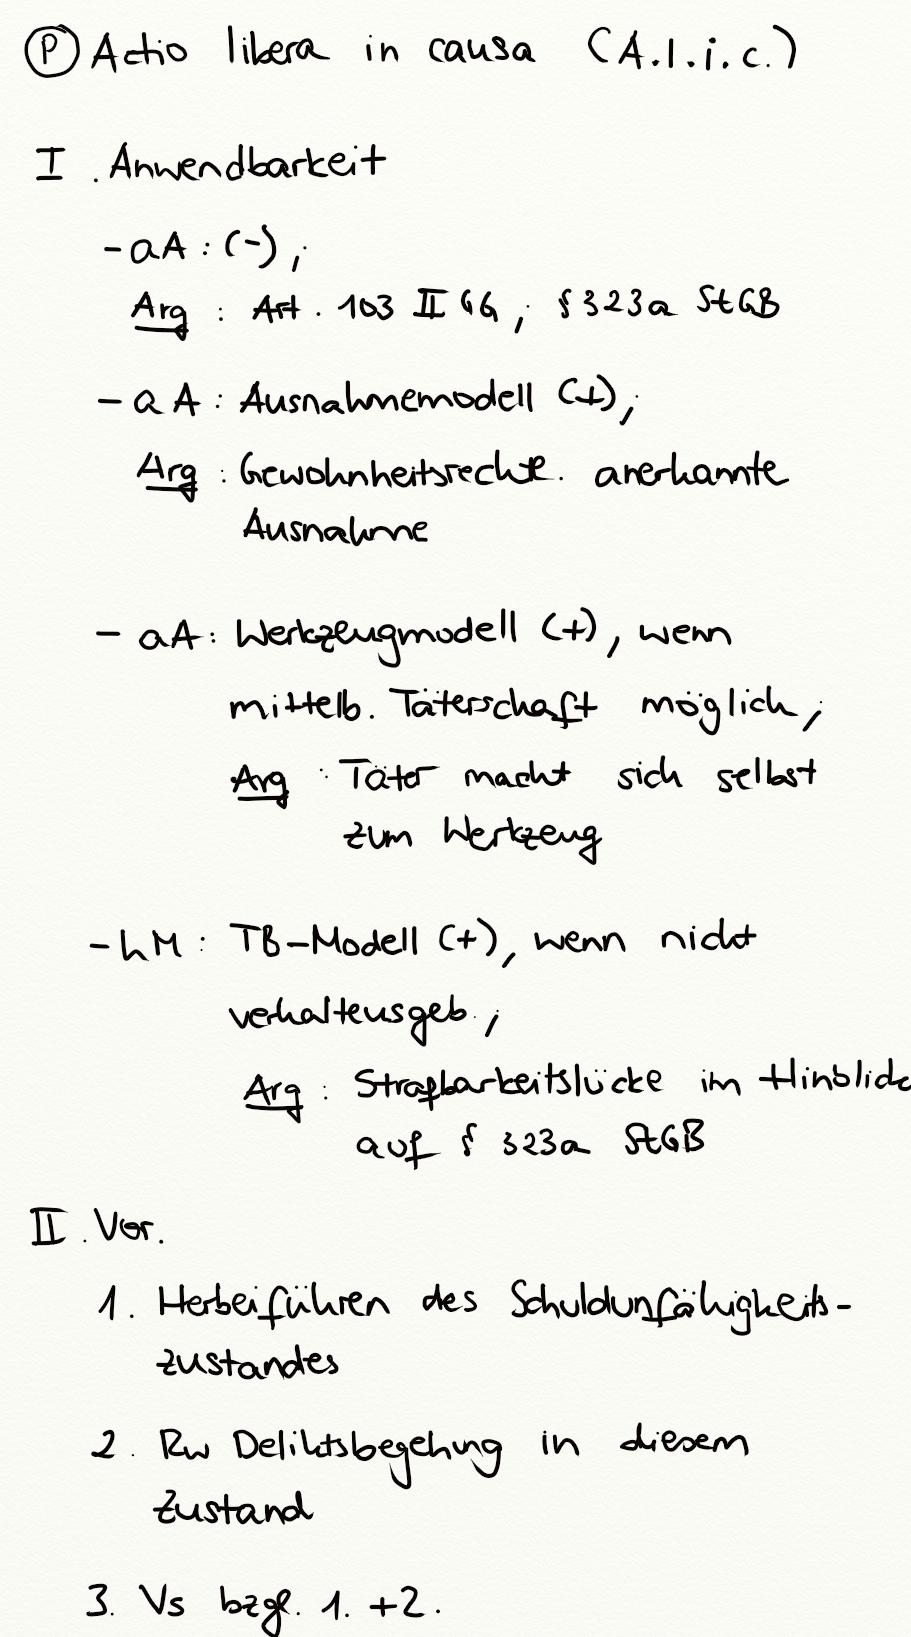 (P) Actio libera in causa (A.l.i.c.)
I. Anwendbarkeit
- aA: (-);
Arg: Art. 103 II GG; § 323a StGB
- aA: Ausnahmemodell (+);
Arg: Gewohnheitsrechtl. anerkannte
Ausnahme
- aA: Werkzeugmodell (+), wenn
mittelb. Täterschaft möglich;
Arg: Täter macht sich selbst
zum Werkzeug
- hM: TB-Modell (+), wenn nicht
verhaltensgeb.;
Arg: Strafbarkeitslücke im Hinblick
auf § 323a StGB
II. Vor.
1. Herbeiführen des Schuldunfähigkeits-
zustandes
2. Rw Deliktsbegehung in diesem
Zustand
3. Vs bzgl. 1. +2.